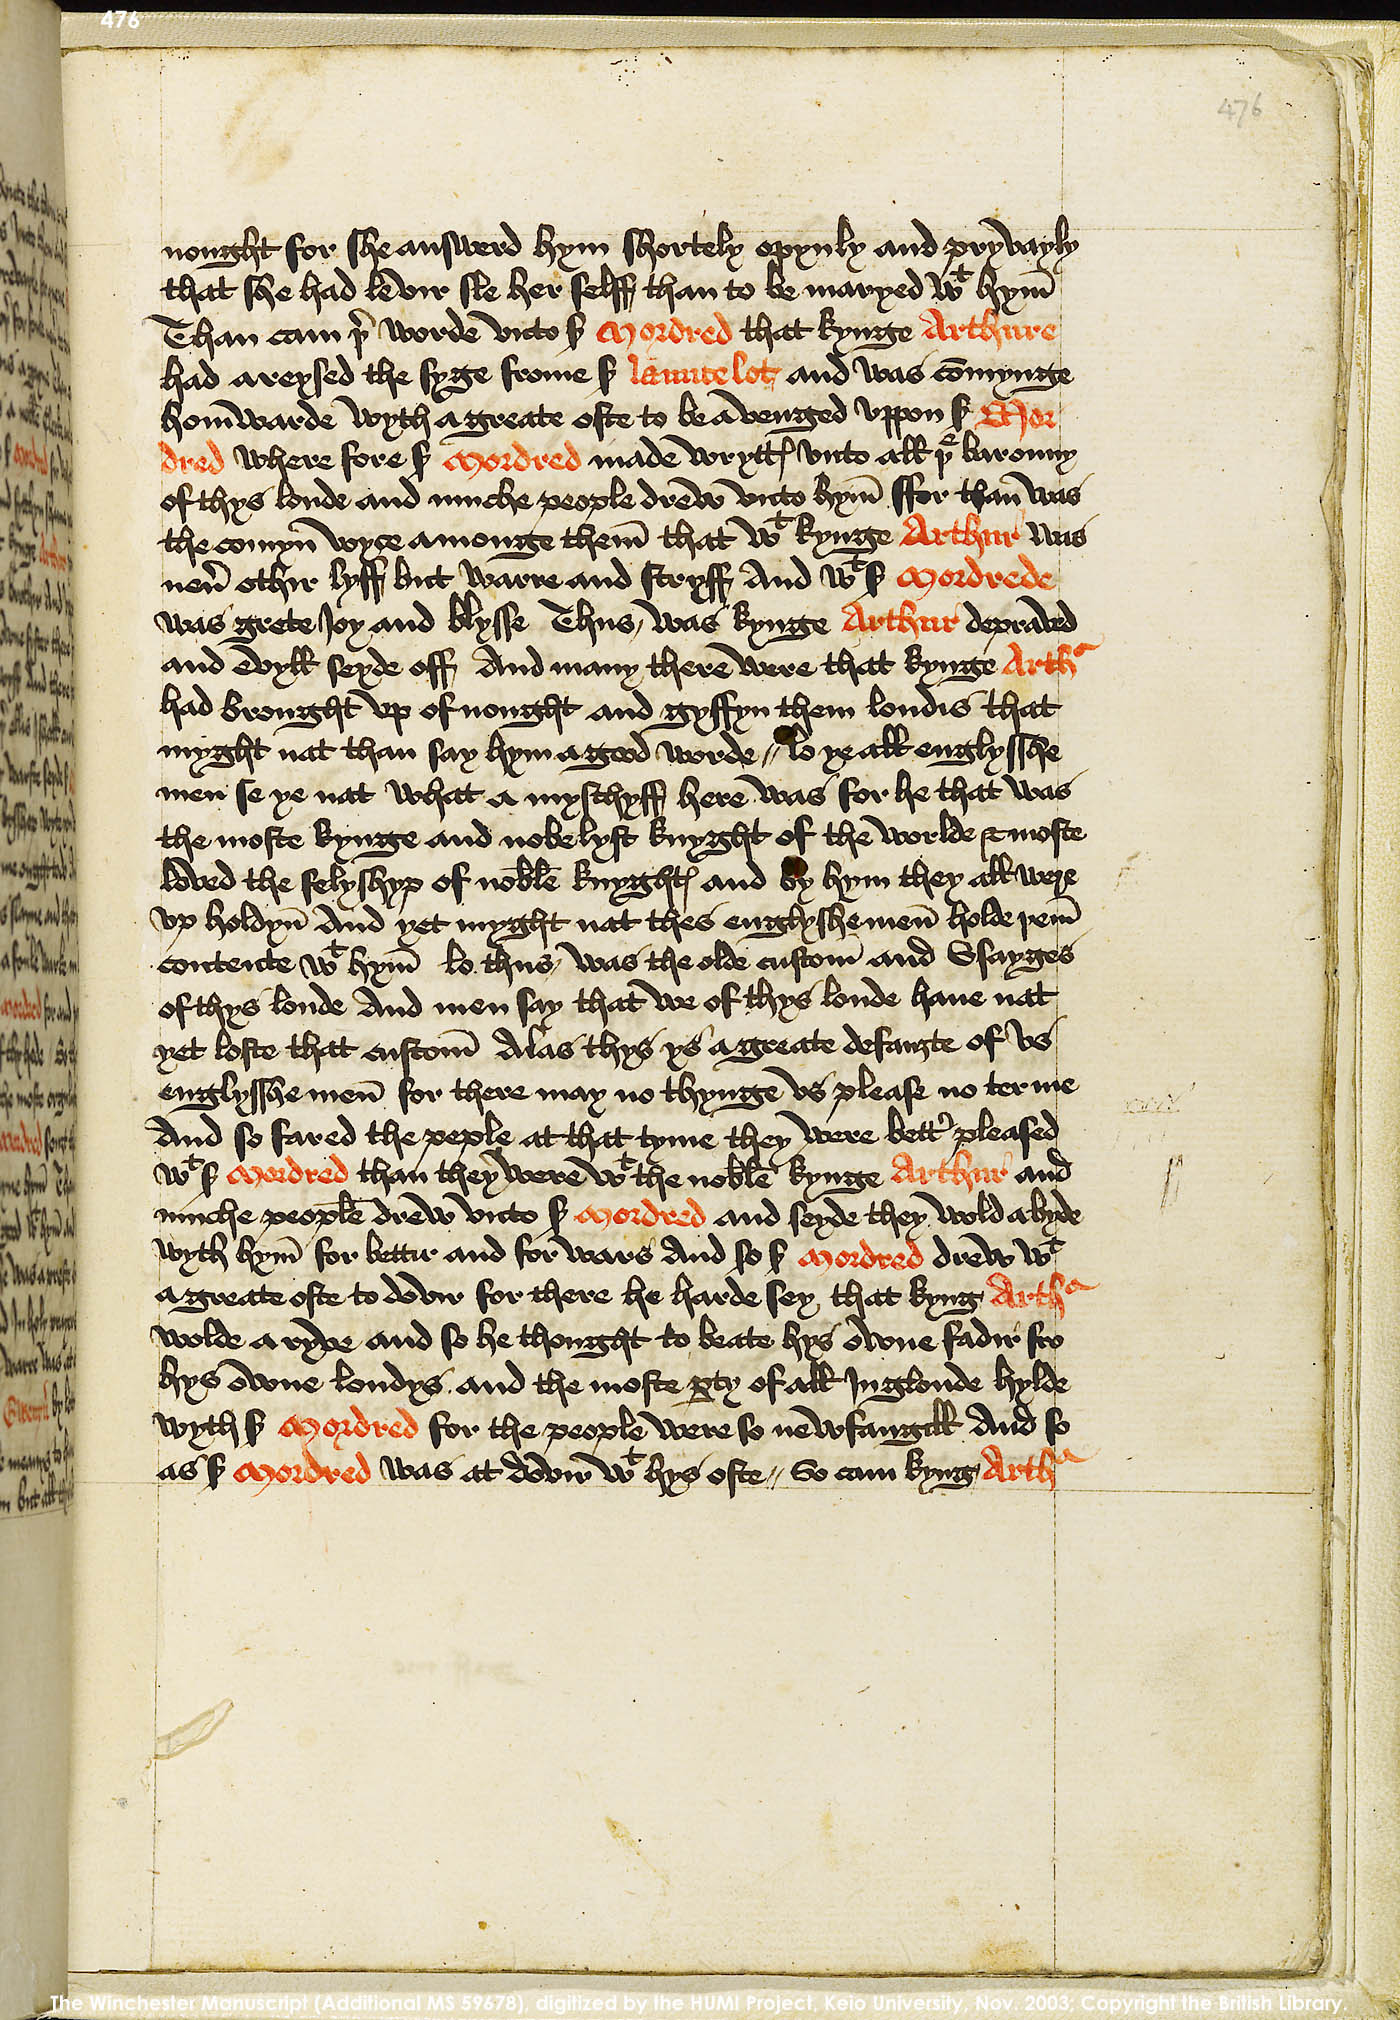 476
476
nought for she answerd hym shortely opynly and pryvayly
that she had levir sle her selff than to be maryed wᵗ hym̄
Than cam þʳ worde vnto sʳ Mordred that kynge Arthure
had areysed the syge frome sʳ launcelot and was cōmynge
homwarde wyth a greate oste to be avenged vppon sʳ Mor
dred where fore sʳ Mordred made wryttꝭ vnto all þᵉ barouny
of thys londe and muche people drew vnto hym̄ ffor than̄ was
the comyn̄ voyce amonge them̄ that wᵗ kynge Arthur was
neuͬ othir lyff but warre and stryff And wᵗ sʳ Mordrede
was grete Joy and blysse Thus was kynge Arthur depraved
and evyll seyde off And many there were that kynge Arthᵃ
had brought vp of nought and gyffyn them londis that
myght nat than say hym a good worde // lo ye all englysshe
men se ye nat what a myschyff here was for he that was
the moste kynge and nobelyst knyght of the worlde ⁊ moste
loved the felyshyp of noble knyghtꝭ and by hym they all were
vp holdyn̄ And yet myght nat thes englyshemen̄ holde þem̄
contente wᵗ hym̄ lo thus was the olde custom̄ and vsayges
of thys londe And men say that we of thys londe haue nat
yet loste that custom̄ Alas thys ys a greate defaughte of vs
englysshemen̄ for there may no thynge vs please no terme
And so fared the peple at that tyme they were bettͬ pleased
wᵗ sʳ Mordred than they were wᵗ the noble kynge Arthur and
muche people drew vnto sʳ Mordred and seyde they wold abyde
wyth hym̄ for bettir and for wars And so sʳ Mordred drew wᵗ
a greate oste to dovir for there he harde sey that kyng Arthᵃ
wolde aryve and so he thought to beate hys owne fadir fro
hys owne londys and the moste ꝑty of all Inglonde hylde
wyth sʳ Mordred for the people were so newfangill And so
as sʳ Mordred was at dovir wᵗ hys oste // So cam kyng Arthᵃ
The Winchester Manuscript (Additional MS 59678), digitized by the HUMI Project, Keio University, Nov. 2003; Copyright the British Library.